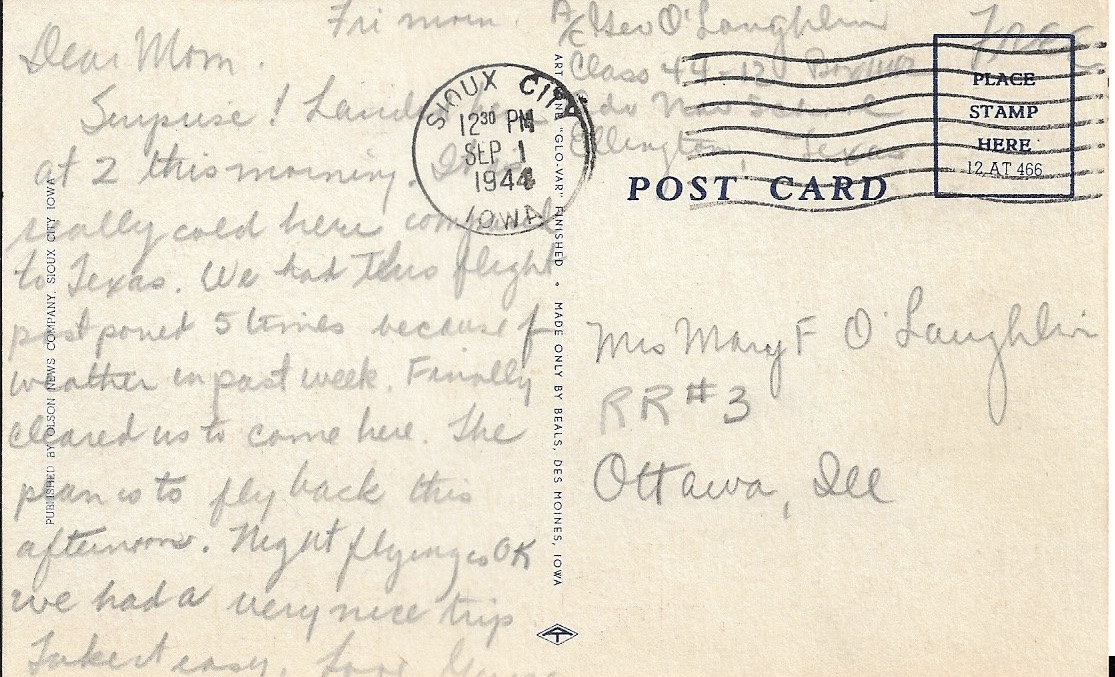 Fri morn.
Dear Mom.
Surprise! Landed here
at 2 this morning. It is
really cold here compared
to Texas. We had this flight
postponed 5 times because of
weather in past week. Finally
cleared us to come here. The
plan is to fly back this
afternoon. Night flying is OK
we had a very nice trip.
Take it easy. Love
PUBLISHED BY OLSON NEWS COMPANY, SIOUX CITY IOWA
SIOUX CITY
12 30 PM
SEP 1
1944
IOWA
"GLO-VAR" FINISHED • MADE ONLY BY BEALS, DES MOINES, IOWA
A/C Geo O'Laughlin
Class 44-12
Adv Nav School
Ellington, Texas
Free
PLACE
STAMP
HERE
12 AT 466
POST CARD
Mrs Mary F O'Laughlin
RR #3
Ottawa, Ill